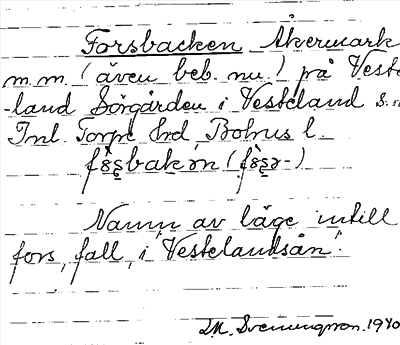 Forsbacken Åkermark
m.m. (även beb. nu.) på Veste
-land Sörgården i Vesteland s.n
Inl. Torpe Hrd, Bohus l.
Namn av läge intill
fors, fall, i "Vestelandsån".
J.M. Svenningson. 1940